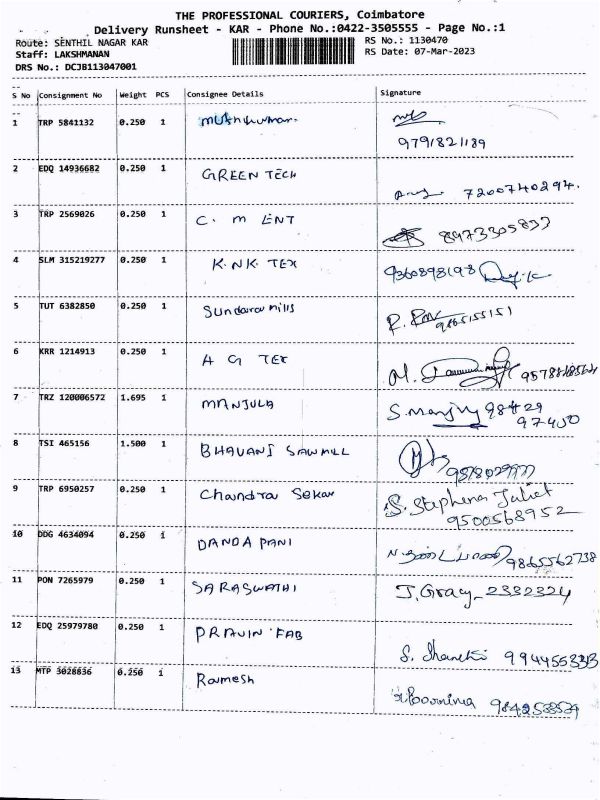 THE PROFESSIONAL COURIERS, Coimbatore
Delivery Runsheet - KAR - Phone No.:0422-3505555 - Page No.:1
Route: SENTHIL NAGAR KAR RS No.: 1130470
Staff: LAKSHMANAN RS Date: 07-Mar-2023
DRS No.: DCJB113047001
S No Consignment No Weight PCS Consignee Details Signature
1 TRP 5841132 0.250 1 Muthukumar
9791821189
2 EDQ 14936682 0.250 1 GREEN TECH
7200740294.
3 TRP 2569026 0.250 1 C. M ENT
8973305837
4 SLM 315219277 0.250 1 K.NK. TEX
9360898198
5 TUT 6382850 0.250 1 Sundara mills
9865155151
6 KRR 1214913 0.250 1 A G TEX
7 TRZ 120006572 1.695 1 MANJULA S. Manju 98429
97450
8 TSI 465156 1.500 1 BHAVANI SAWMILL
9 TRP 6950257 0.250 1 Chandra Sekar S. Stephena Juliet
9500568952
10 DDG 4634094 0.250 1 DANDA PANI 9865562738
11 PON 7265979 0.250 1 SARASWATHI J. Gracy 2332324
12 EDQ 25979780 0.250 1 PRAVIN FAB
S. Shanthi
13 MTP 3028836 0.250 1 Ramesh
Poornima